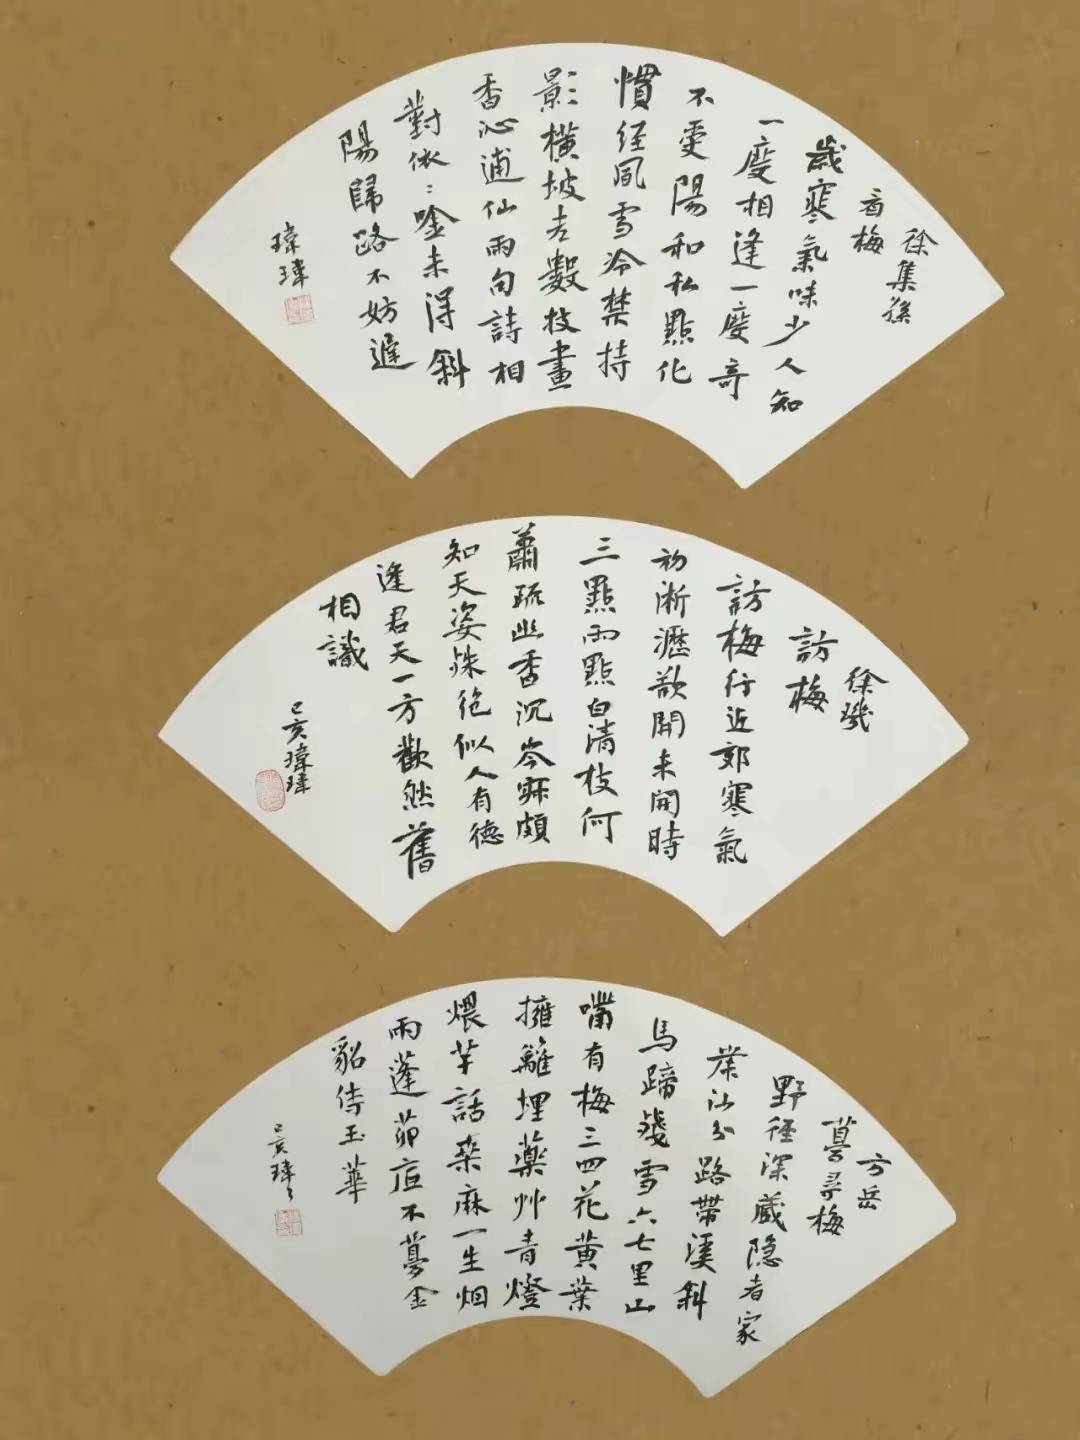 徐集孫
看梅
歲寒氣味少人知
一度相逢一度奇
不受陽和私點化
慣经風雪冷禁持
影橫坡老數枝畫
香沁逋仙兩句詩相
對依:吟未得斜
陽歸路不妨遲
瑋瑋
徐璣
訪梅
訪梅行近郊寒氣
初淅瀝欲開未開時
三點兩點白清枝何
蕭疏幽香沉岑寂頗
知天姿殊绝似人有德
逢君天一方歡然舊
相識
己亥瑋瑋
方岳
夢尋梅
野徑深藏隐者家
岸沙分路帶溪斜
馬蹄殘雪六七里山
嘴有梅三四花黃葉
擁籬埋藥艸青燈
煨芋話桑麻一生烟
雨蓬茆底不夢金
貂侍玉華
己亥瑋々